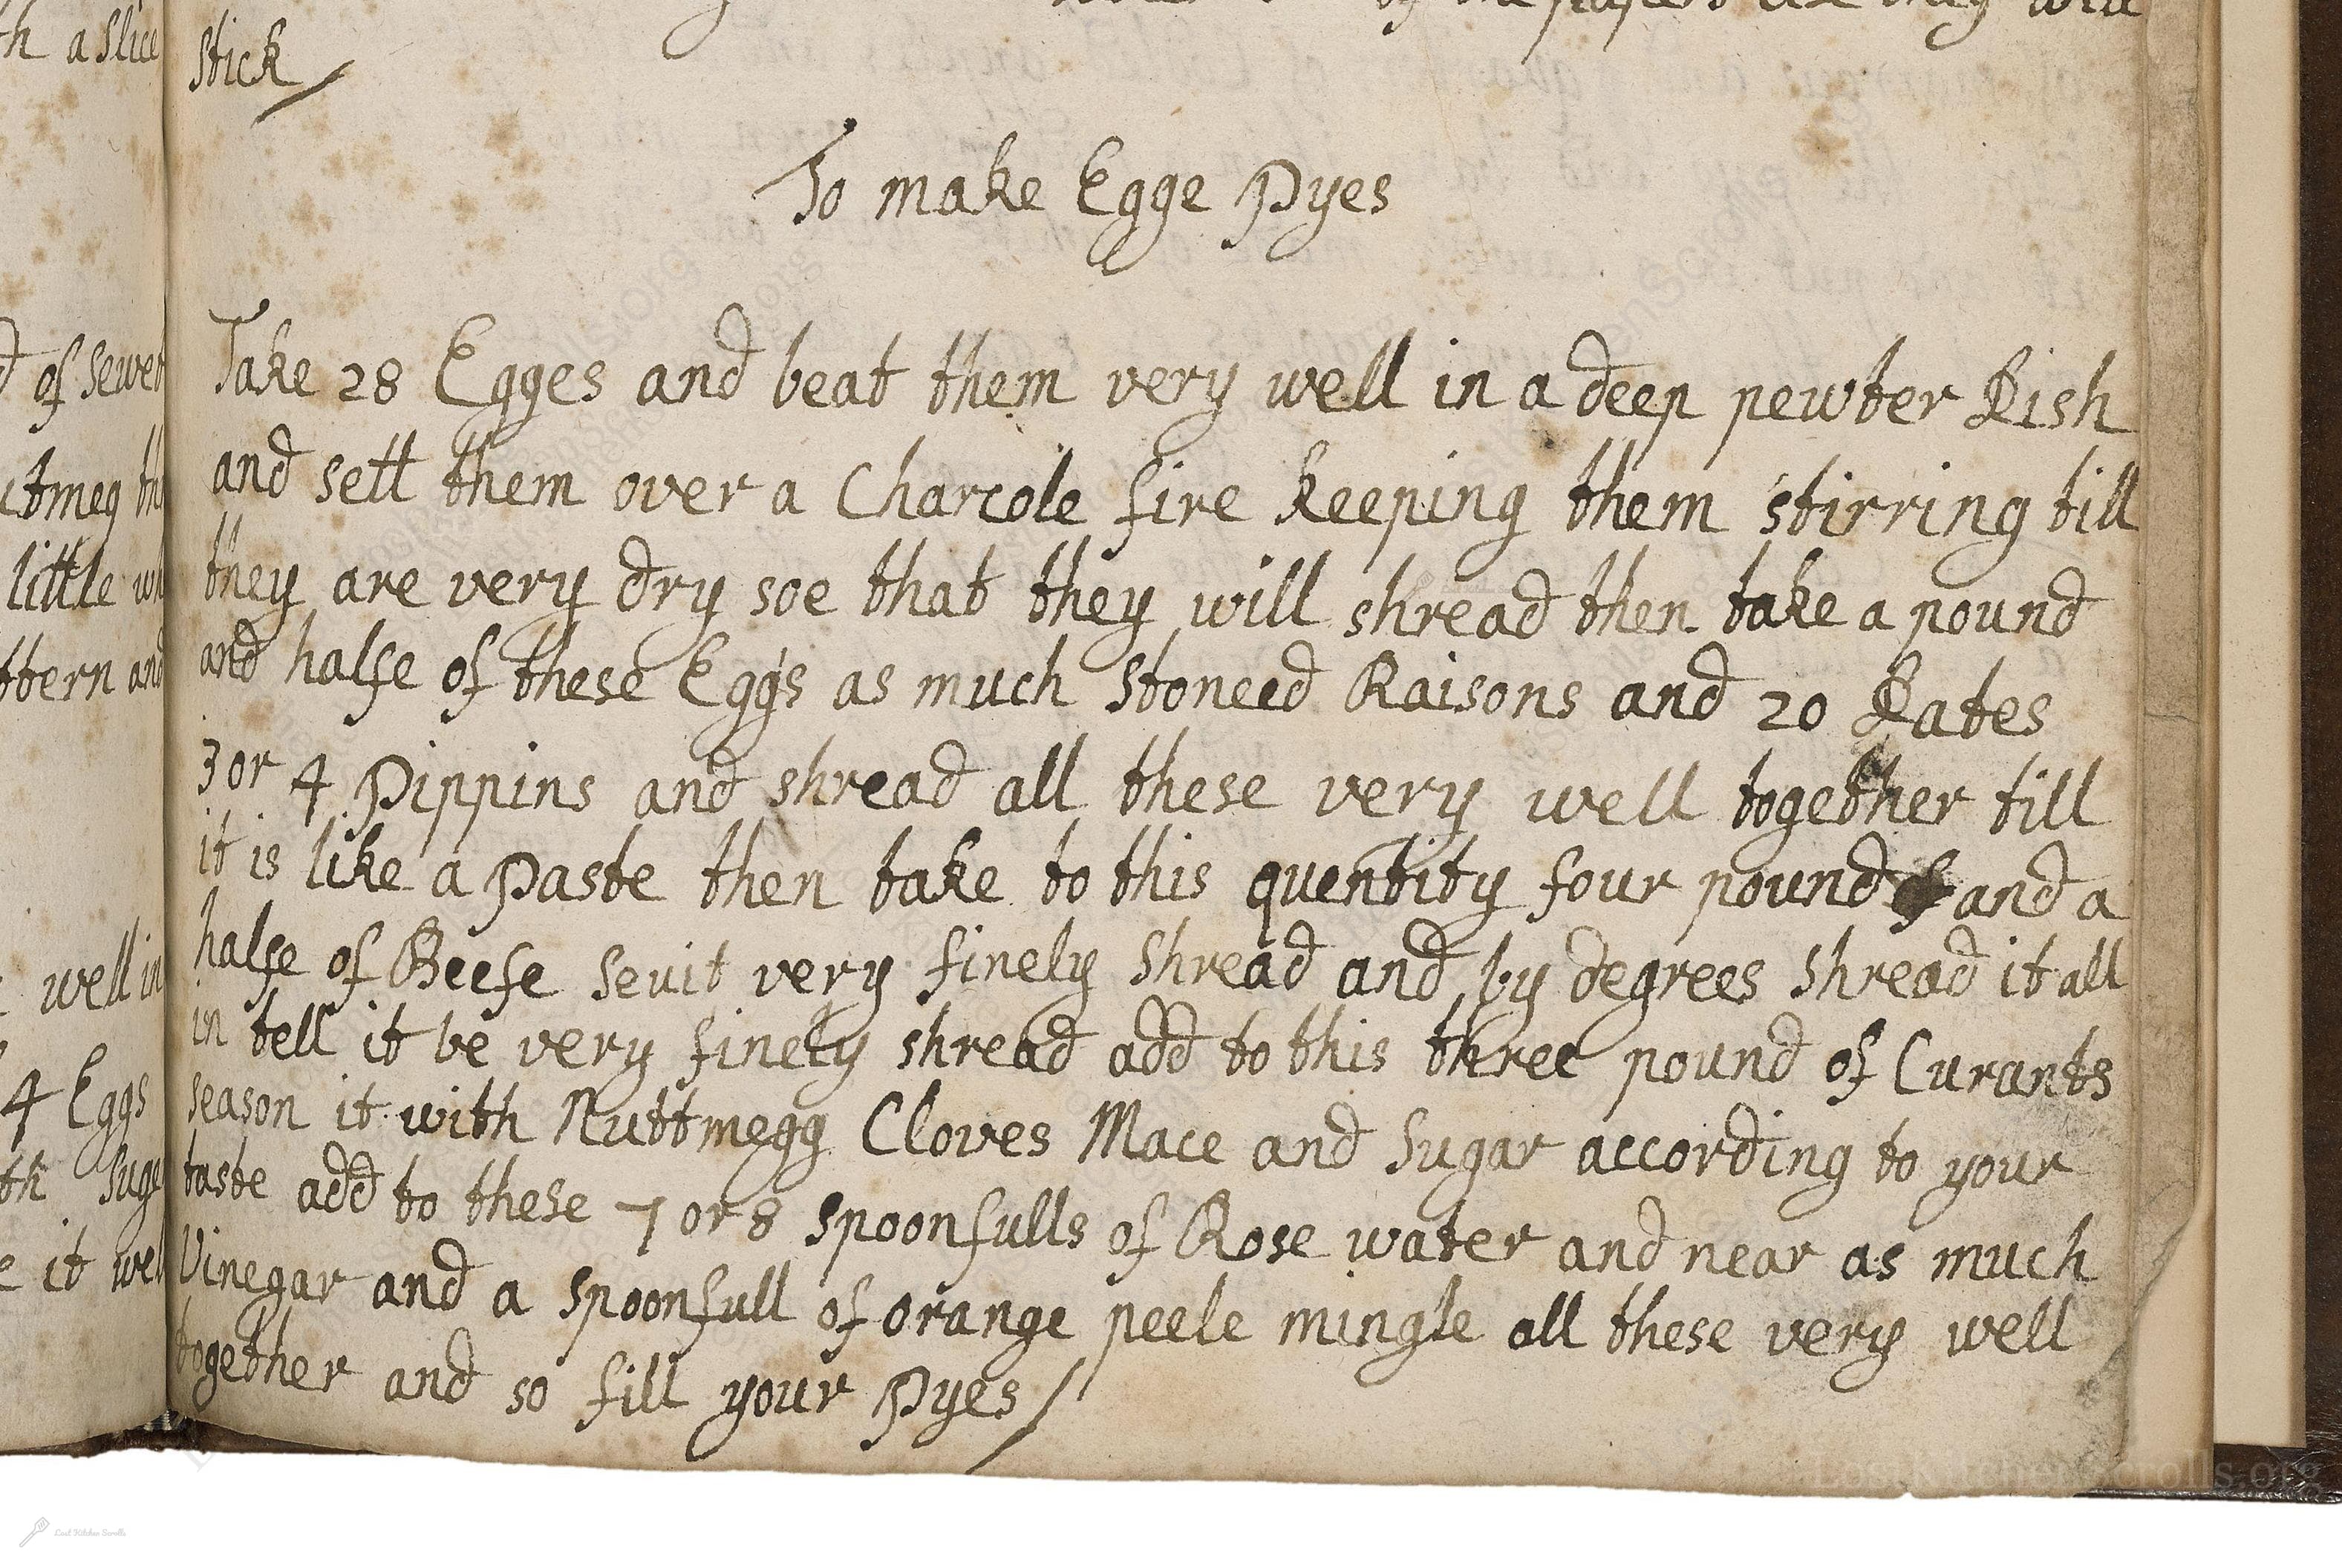 th a slice
stick
To make Egge Pyes
d of sewet
Take 28 Egges and beat them very well in a deep pewter Dish
and sett them over a Charcole fire keeping them stirring till
they are very dry soe that they will shread then take a pound
little
and halfe of these Eggs as much Stoneed Raisons and 20 Dates
3 or 4 Pippins and shread all these very well together till
it is like a Paste then take to this quentity four pound and a
halfe of Beefe seuit very finely shread and by degrees shread it all
well in
in tell it be very finely shread add to this three pound of Curants
4 Eggs
season it with Nuttmegg Cloves Mace and Sugar according to your
taste add to these 7 or 8 spoonfulls of Rose water and near as much
it wel
Vinegar and a spoonfull of orange peele mingle all these very well
together and so fill your Pyes
LostKitchenScrolls.org
Lost Kitchen Scrolls